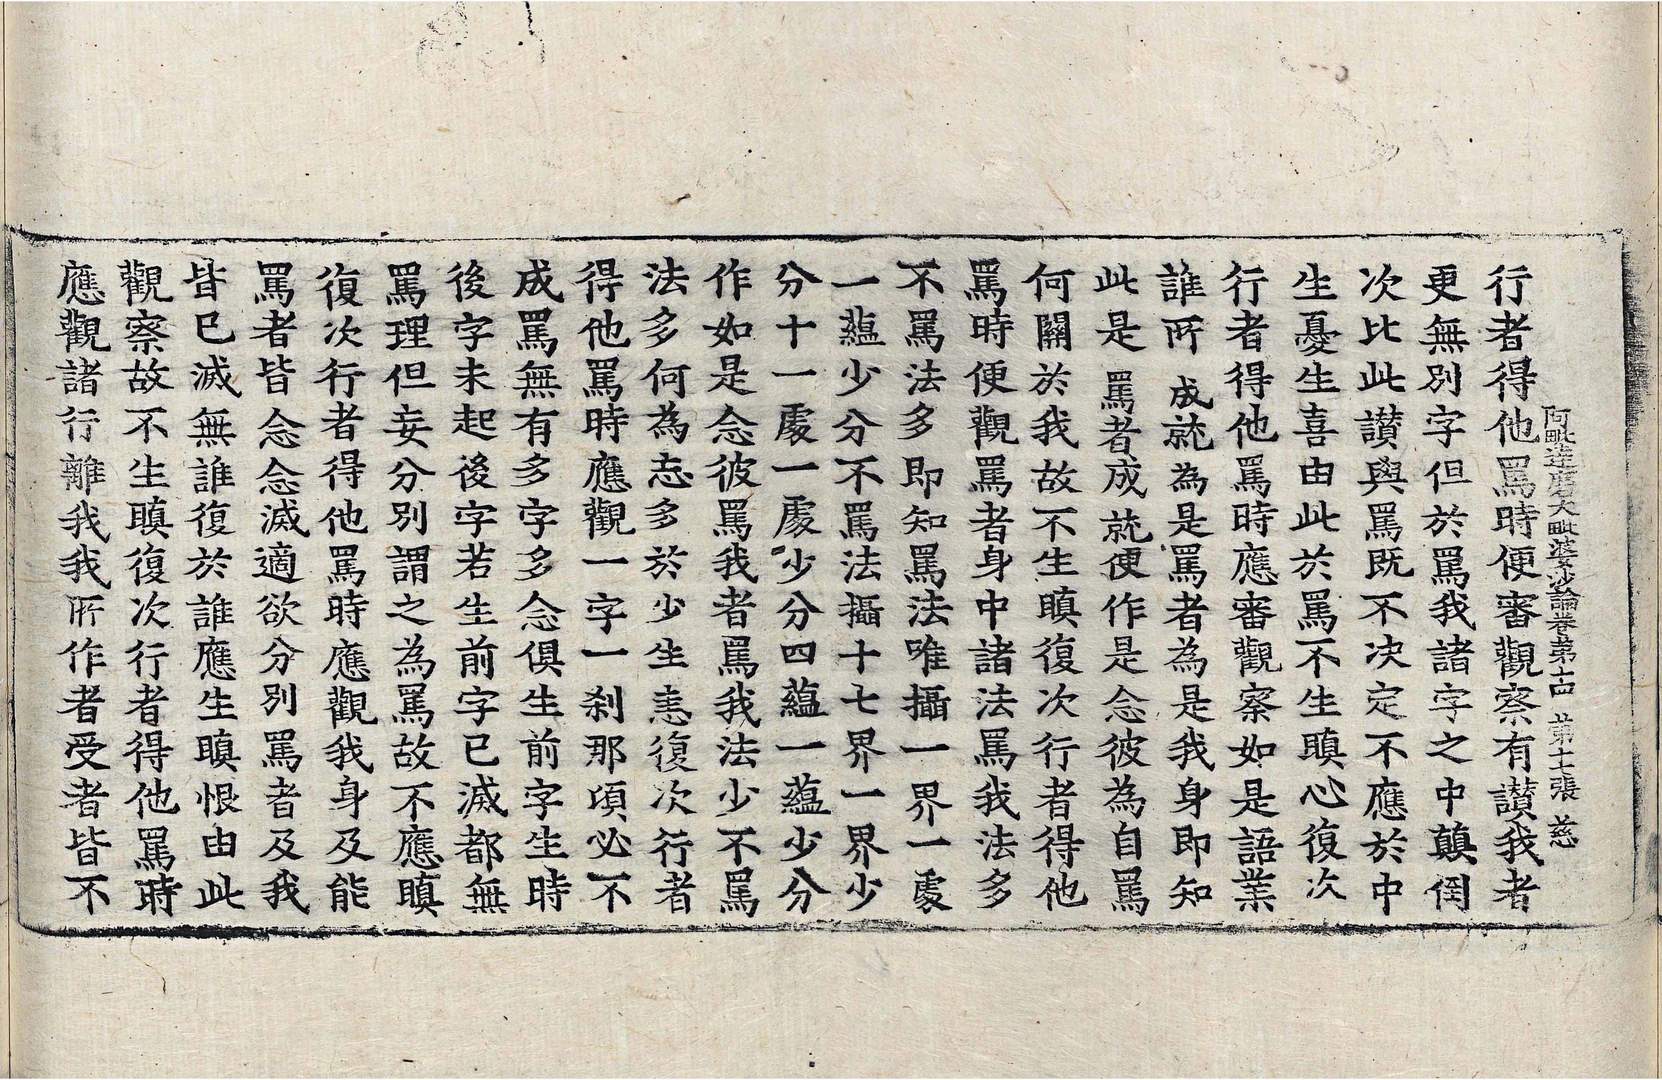 阿毗達磨大毗婆沙論卷第十四 第十七張 慈
行者得他罵時便審觀察有讃我者
更無別字但於罵我諸字之中顛倒
次比此讃與罵既不决定不應於中
生憂生喜由此於罵不生瞋心復次
行者得他罵時應審觀察如是語業
誰所成就為是罵者為是我身即知
此是罵者成就便作是念彼為自罵
何關於我故不生瞋復次行者得他
罵時便觀罵者身中諸法罵我法多
不罵法多即知罵法唯攝一界一處
一蘊少分不罵法攝十七界一界少
分十一處一處少分四蘊一蘊少分
作如是念彼罵我者罵我法少不罵
法多何為忘多於少生恚復次行者
得他罵時應觀一字一刹那頃必不
成罵無有多字多念俱生前字生時
後字未起後字若生前字已滅都無
罵理但妄分別謂之為罵故不應瞋
復次行者得他罵時應觀我身及能
罵者皆念念滅適欲分別罵者及我
皆已滅無誰復於誰應生瞋恨由此
觀察故不生瞋復次行者得他罵時
應觀諸行離我我所作者受者皆不